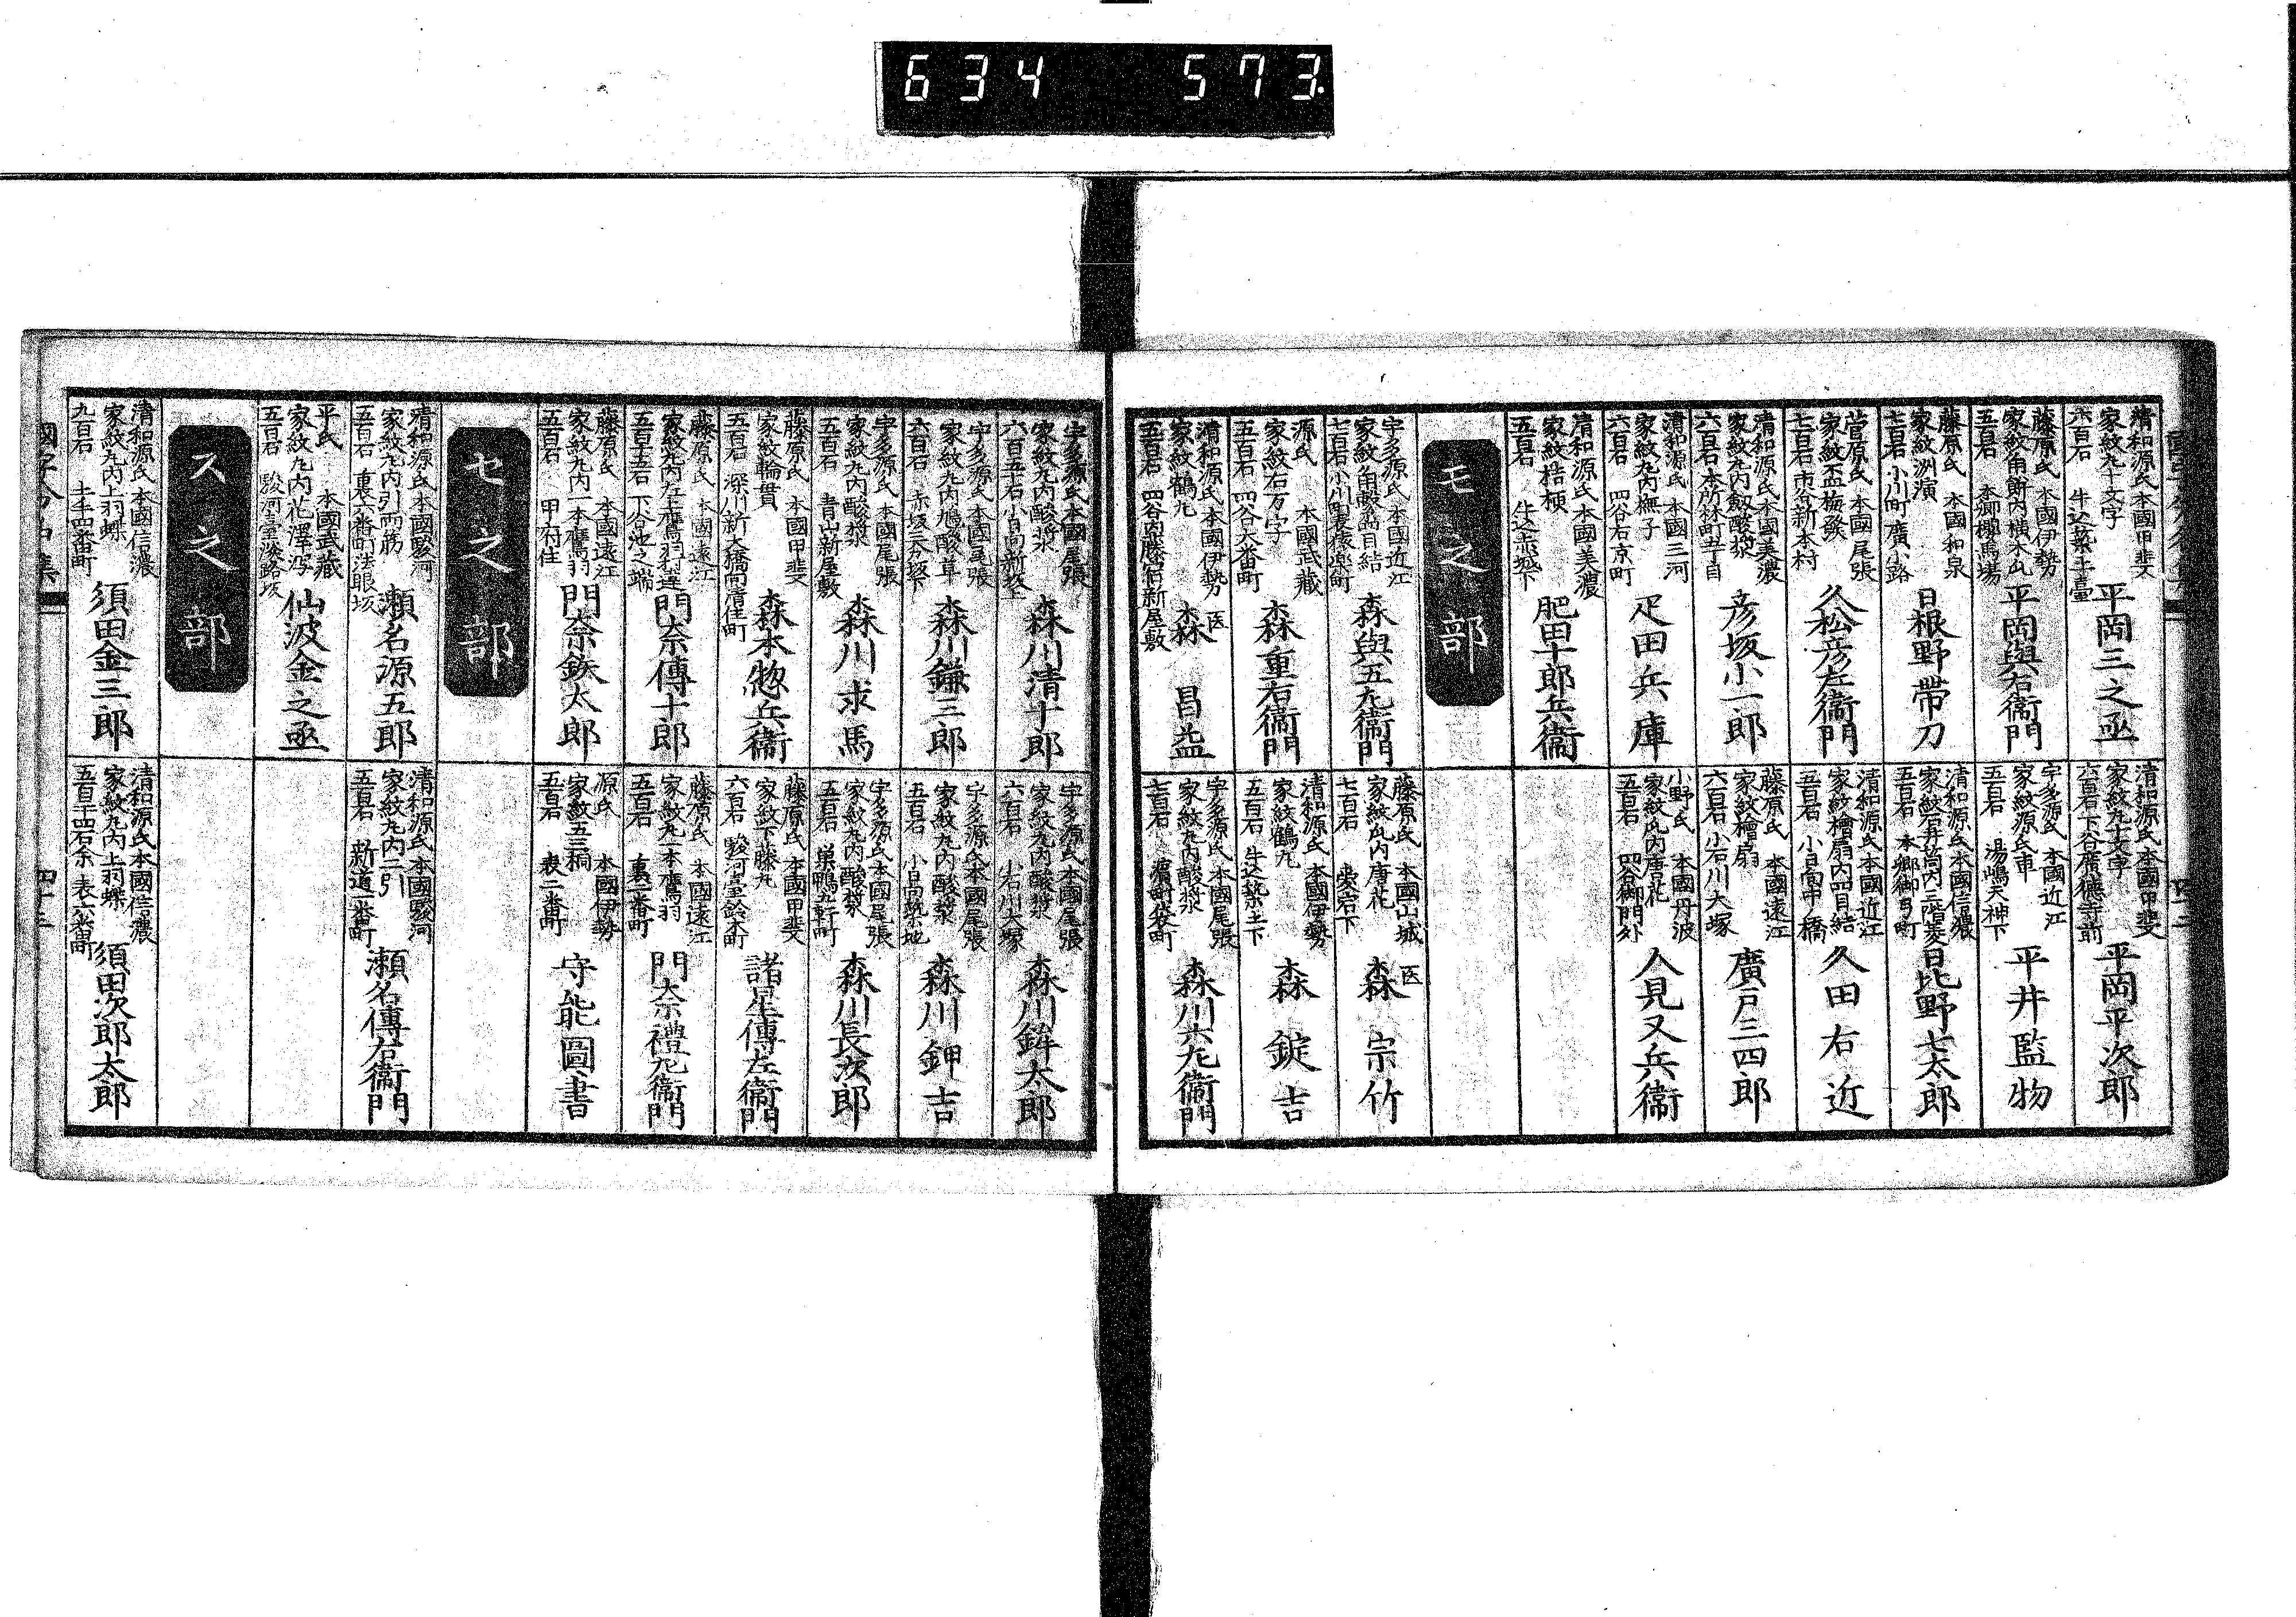 634 573.
清和源氏 本國甲斐
家紋丸十文字
六百石 牛込築土臺
平岡三之丞
藤原氏 本國伊勢
家紋角餅内横木瓜
五百石 本郷櫻馬場
平岡與右衞門
藤原氏 本國和泉
家紋洲濱
七百石 小川町廣小路
日根野帯刀
菅原氏 本國尾張
家紋盃梅發
七百石 市谷新本村
久松彦左衞門
清和源氏 本國美濃
家紋丸内劔酸漿
六百石 本所林町五丁目
彦坂小一郎
清和源氏 本國三河
家紋丸内撫子
六百石 四谷右京町
疋田兵庫
清和源氏 本國美濃
家紋桔梗
五百石 牛込赤城下
肥田十郎兵衞
清和源氏 本國甲斐
家紋丸十文字
六百石 下谷廣徳寺前
平岡平次郎
宇多源氏 本國近江
家紋源氏車
五百石 湯嶋天神下
平井監物
清和源氏 本國信濃
家紋石井筒内三階菱
五百石 本郷御弓町
日比野七太郎
清和源氏 本國近江
家紋檜扇内四目結
五百石 小日向中ノ橋
久田右近
藤原氏 本國遠江
家紋檜扇
六百石 小石川大塚
廣戸三四郎
小野氏 本國丹波
家紋瓜内唐花
五百石 四谷御門外
人見又兵衞
モ之部
宇多源氏 本國近江
家紋角輪四目結
七百石 小川町裏猿楽町
森與五左衞門
源氏 本國武藏
家紋石万字
五百石 四谷大番町
森重右衞門
清和源氏 本國伊勢
家紋鶴丸
五百石 四谷内藤宿新屋敷
医
森昌益
藤原氏 本國山城
家紋瓜内唐花
七百石 愛宕下
医
森宗竹
清和源氏 本國伊勢
家紋鶴丸
五百石 牛込築土下
森錠吉
宇多源氏 本國尾張
家紋丸内酸漿
七百石
森川六左衞門
宇多源氏 本國尾張
家紋丸内酸漿
六百五十石 小日向新坂上
森川清十郎
宇多源氏 本國尾張
家紋丸内鳩酸草
六百石 赤坂三分坂下
森川鎌三郎
宇多源氏 本國尾張
家紋丸内酸漿
五百石 青山新屋敷
森川求馬
藤原氏 本國甲斐
家紋輪貫
五百石 深川新大橋向清住町
森本惣兵衞
藤原氏 本國遠江
家紋丸内左上鷹羽打違
五百十五石 下谷池之端
門奈傳十郎
藤原氏 本國遠江
家紋丸内一本鷹羽
五百石 甲府住
門奈鉄太郎
宇多源氏 本國尾張
家紋丸内酸漿
六百石 小石川大塚
森川鉾太郎
宇多源氏 本國尾張
家紋丸内酸漿
五百石 小日向築地
森川鉀吉
宇多源氏 本國尾張
家紋丸内酸漿
五百石 巣鴨五軒町
森川長次郎
藤原氏 本國甲斐
家紋下藤丸
六百石 駿河臺鈴木町
諸星傳左衞門
藤原氏 本國遠江
家紋丸一本鷹羽
五百石 裏二番町
門奈禮左衞門
源氏 本國伊勢
家紋五三桐
五百石 表二番町
守能圖書
セ之部
清和源氏 本國駿河
家紋丸内引両筋
五百石 裏六番町法眼坂
瀬名源五郎
平氏 本國武藏
家紋丸内花澤瀉
五百石 駿河臺淡路坂
仙波金之丞
清和源氏 本國駿河
家紋丸内二引
五百石 新道一番町
瀬名傳右衞門
ス之部
清和源氏 本國信濃
家紋丸内上羽蝶
九百石 土手四番町
須田金三郎
清和源氏 本國信濃
家紋丸内上羽蝶
五百三十四石余 表六番町
須田次郎太郎